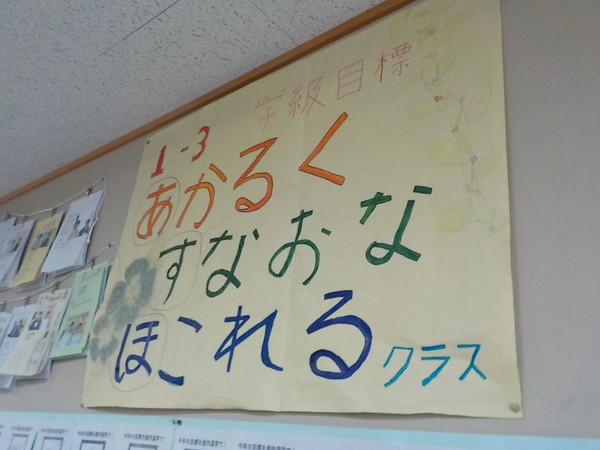 学級目標
1-3
あかるく
すなおな
ほこれる クラス